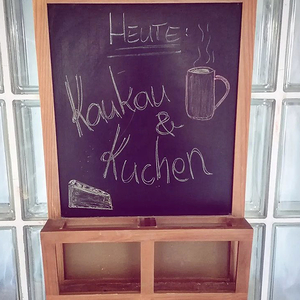 HEUTE:
Kaukau
&
Kuchen